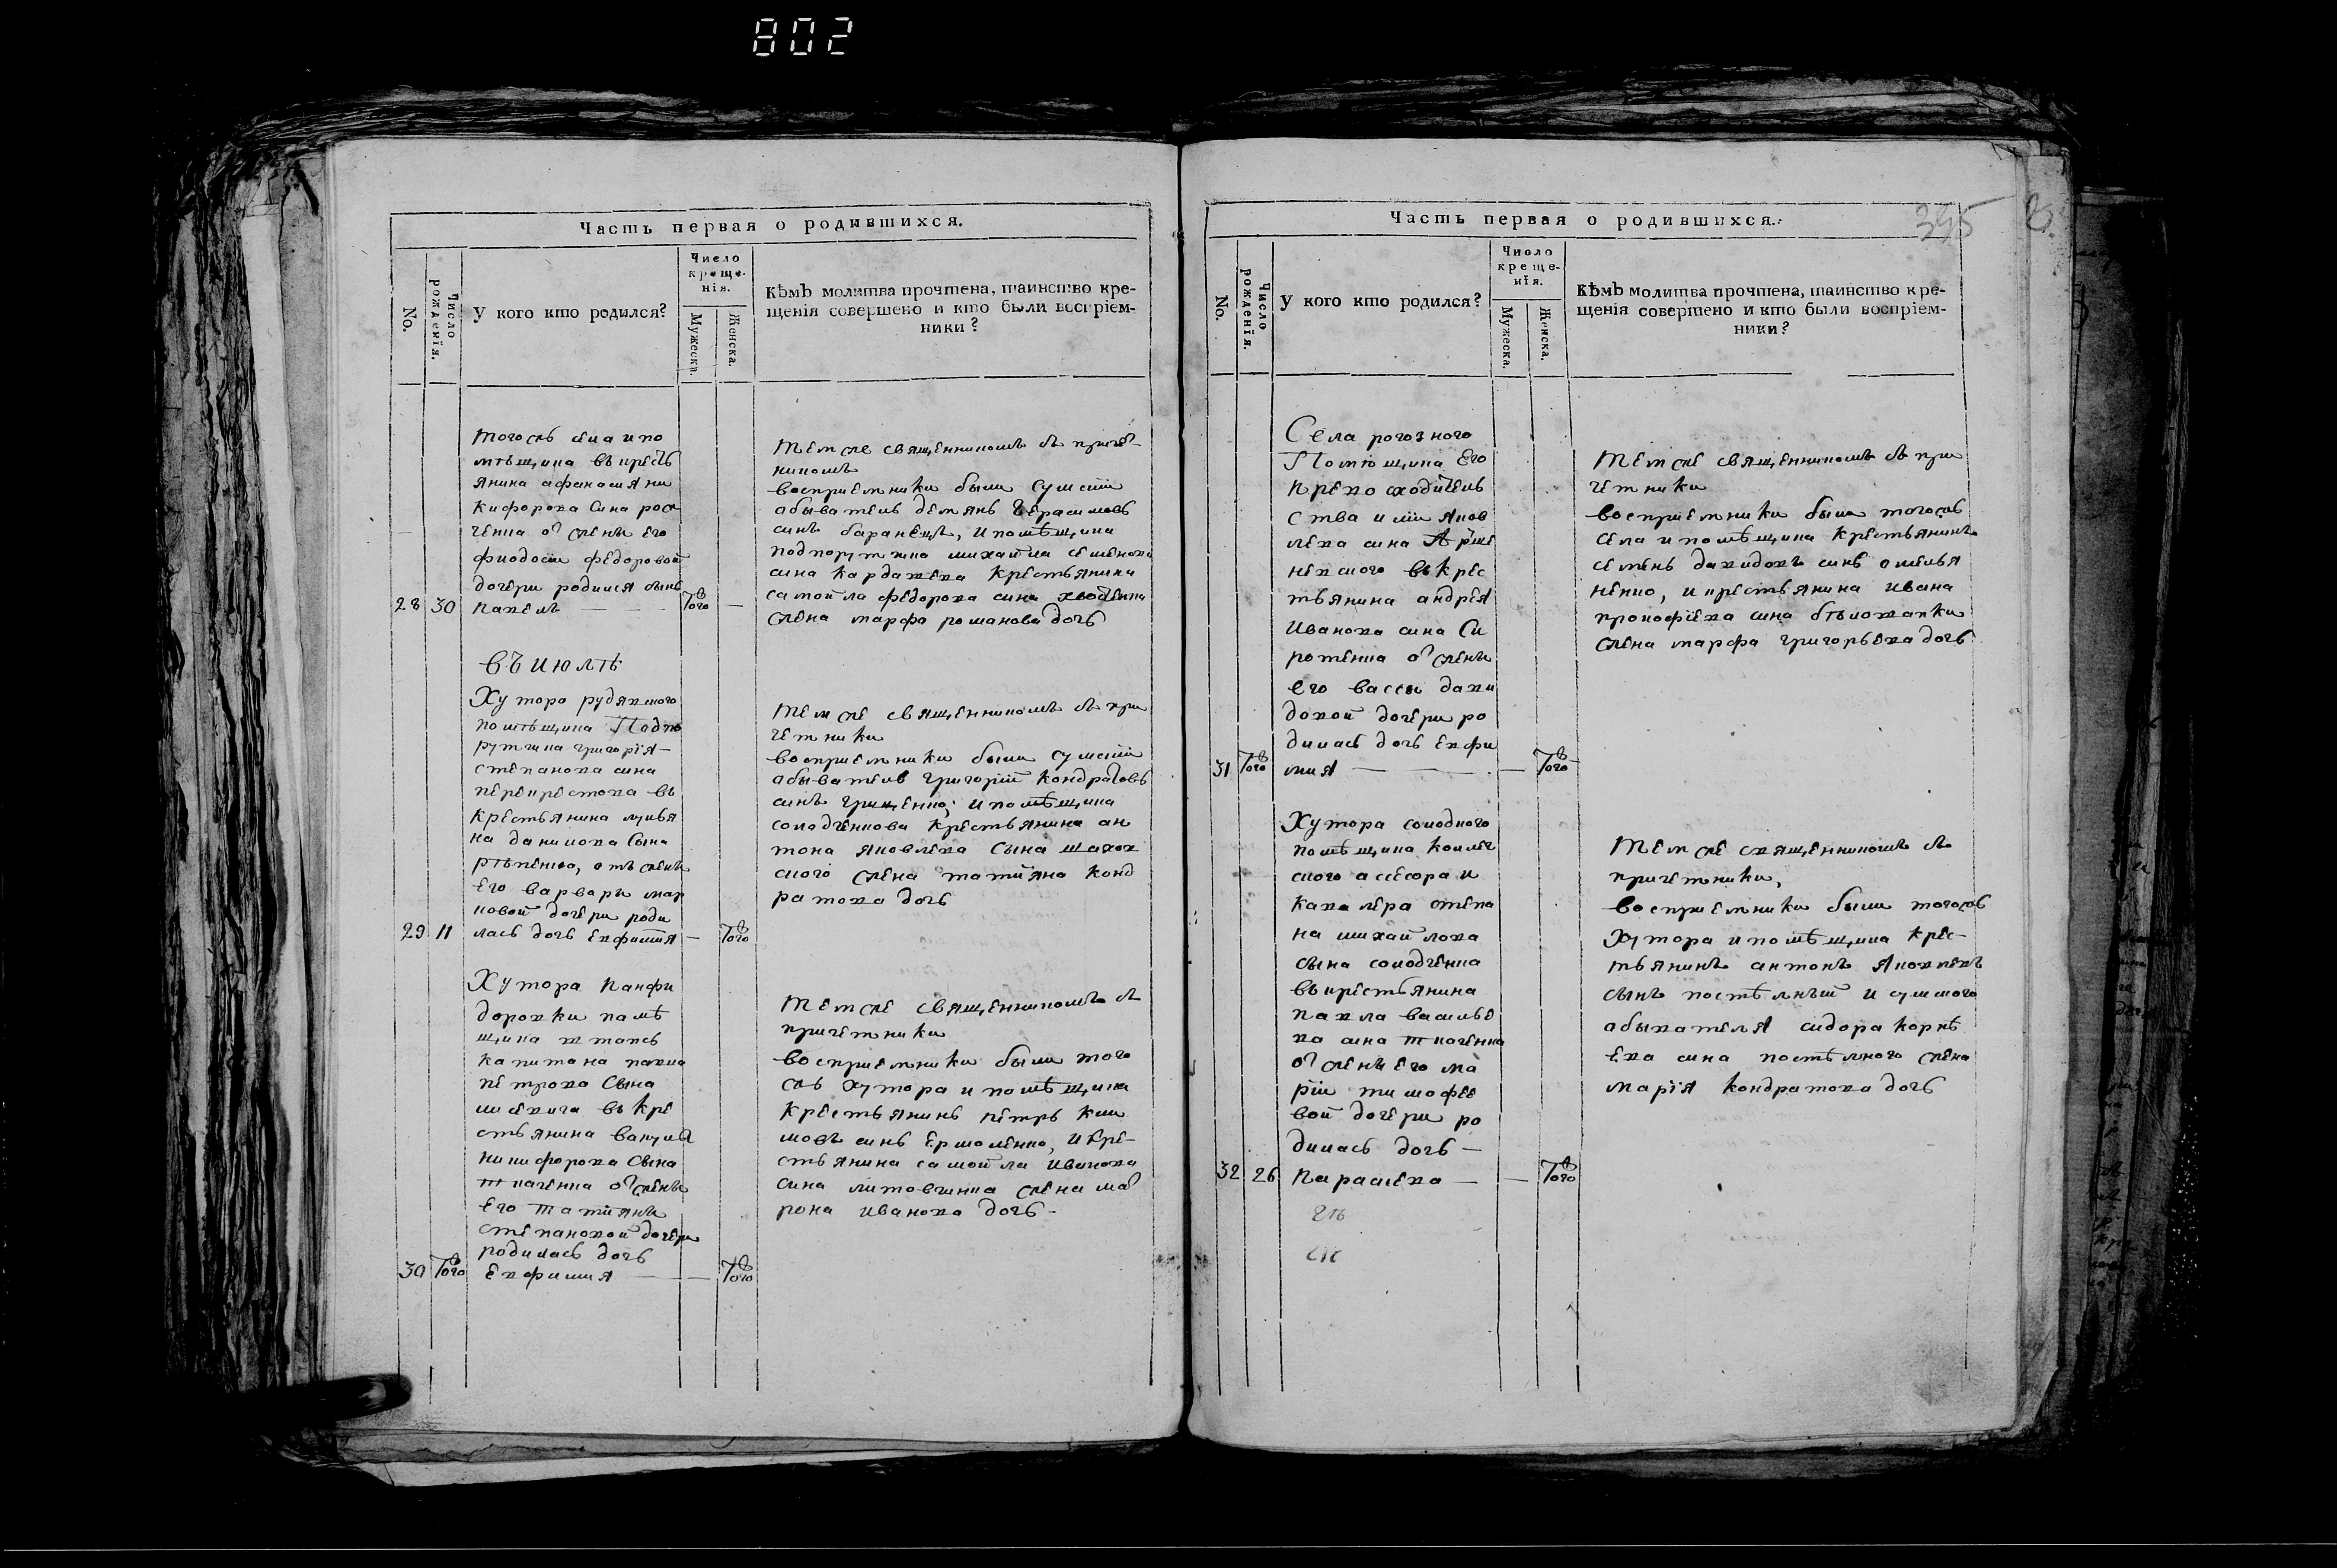 802
Часть первая о родившихся.
No.
Число рожденія.
У кого кто родился?
Число креще-
нія.
Мужеска.
Женска.
Кѣмъ молитва прочтена, таинство кре-
щенія совершено и кто были воспріем-
ники?
тогожъ села и по
мѣщика въ крест
янина афанасия ни
кифорова сина
его
фиодосіи федоровой
дочери родился сынъ
28 30 Павелъ — Того —
Темже священникомъ съ причет-
никомъ
восприемники были
абыватель демянъ герасимовъ
синъ баранецъ, и помѣщика
подпорутчика михайла семенова
сина крестьянина
самойла федорова сина
жена марфа романова дочь
въ июлѣ
Хутора рудявского
помѣщика Падпо
рутчика григорія
степанова сина
перекрестова въ
крестьянина лукья
на данилова сына
рѣпенко, отъ жены
его варвары мар
ковой дочери роди
29 11 лась дочь Евфимія — Того
Темже священникомъ съ при
четники
восприемники были
абыватель григорій кондратовъ
синъ грищенко, и помѣщика
солодченкова крестьянина ан
тона яковлева сына шахов
ского жена татияна конд
ратова дочь
Хутора Панфи
доровки памѣ
щика штапсъ
капитана павла
петрова сына
въ кре
стьянина вакула
никифорова сына
ткаченка от жены
его татияны
степановой дочери
родилась дочь
30 Того Евфимия — Того
Темже священникомъ съ
причетники
восприемники были того
жъ хутора и помѣщика
крестьянинъ петръ кли
мовъ синъ ермоленко, и кре-
стьянина самойла иванова
сина литовченка жена мат
рона иванова дочь
Часть первая о родившихся.
395
No.
Число рожденія.
У кого кто родился?
Число креще-
нія.
Мужеска.
Женска.
Кѣмъ молитва прочтена, таинство кре-
щенія совершено и кто были воспріем-
ники?
Села рогозного
Помѣщика Его
превосходитель
ства илии яков
лева сина Арше
невского въ крес
тьянина андрея
иванова сина Си
ротенка от жены
его вассы дави
довой дочери ро
дилась дочь евфи
31 Того мия — Того
Темже священникомъ съ при
четники
восприемники были тогожъ
села и помѣщика крестьянинъ
семенъ давидовъ синъ омелья
ненко, и крестьянина ивана
прокофіева сина бѣловапки
жена марфа григорьева дочь
Хутора солодкого
помѣщика коллеж
ского ассесора и
кавалера степа
на михайлова
сына солодченка
въ крестьянина
павла василье
ва сина ткаченка
от жены его ма
ріи тимофее
вой дочери ро
дилась дочь —
32 26 Парасцева — Того
Темже священникомъ съ
причетники,
восприемники были тогожъ
хутора и помѣщика крес-
тьянинъ антонъ яковлевъ
сынъ
абывателя сидора корнѣ
ева сина жена
марія кондратова дочь